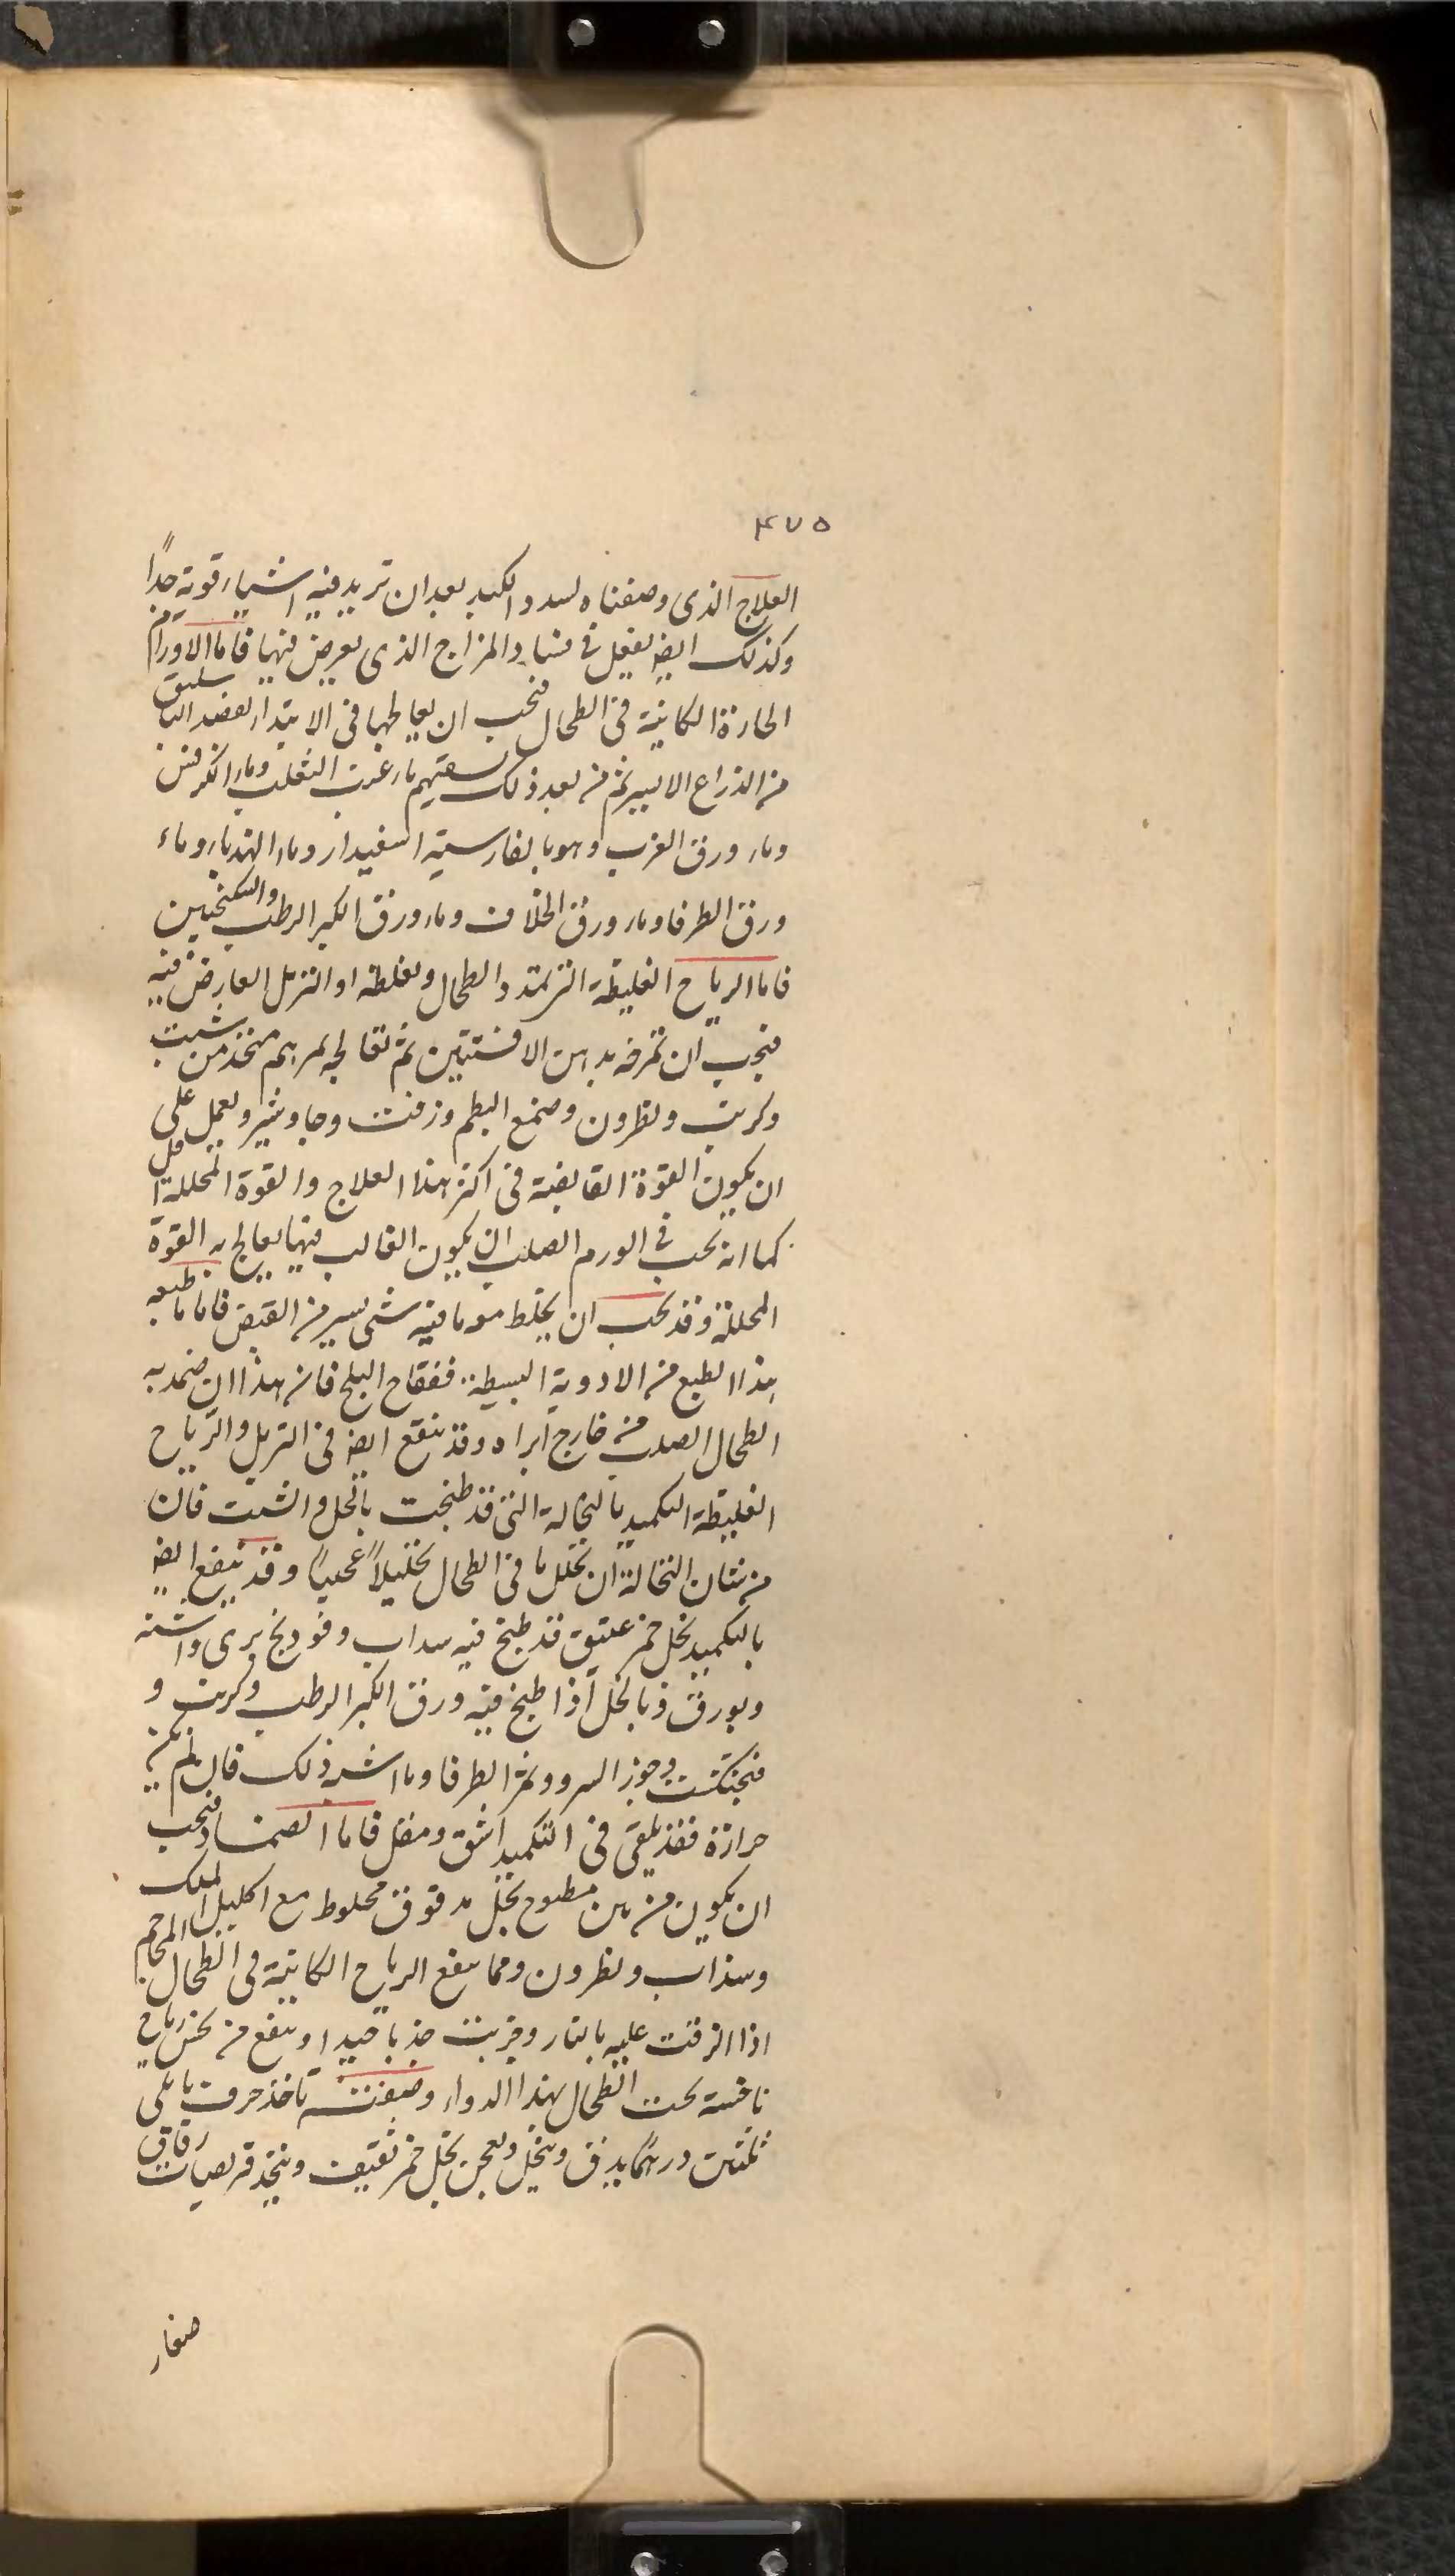 ۴۷۵
العلاج الذى وصفناه لسدد الكبد بعد ان تزيد فيه اشياء قوية جداً
وكذلك ايضا يفعل فى فساد المزاج الذى يعرض فيها فاما الاورام
الحارة الكاينة فى الطحال فيجب ان يعالجها فى الابتدا بفصد الباسليق
من الذراع الايسر ثم من بعد ذلك يسقيهم ماء عنب الثعلب وماء الكرفس
وماء ورق الغرب وهو بالفارسية اسفيدار وماء الهندباء وماء
ورق الطرفا وماء ورق الخلاف وماء ورق الكبر الرطب والسكنجبين
فاما الرياح الغليظة التى تمدد الطحال وتغلظه او الترهل العارض فيه
فيجب ان تمرخه بدهن الافسنتين ثم تعالجه بمرهم متخذ من شبت
وكبريت ونطرون وصمغ البطم وزفت وجاوشير ويعمل على
ان يكون القوة القابضة فى اكثر هذا العلاج والقوة المحللة اقل
كما انه يجب فى الورم الصلب ان يكون الغالب فيما يعالج به القوة
المحللة وقد يجب ان يخلط معه ما فيه شى يسير من القبض فاما ما طبعه
هذا الطبع من الادوية البسيطة ففقاح البلح فان هذا ان ضمد به
الطحال الصلب من خارج ابراه وقد ينفع ايضا فى الترهل والرياح
الغليظة التكميد بالنخالة التى قد طبخت بالخل والشبت فان
من شان النخالة ان تحلل ما فى الطحال تحليلاً عجيباً وقد ينفع ايضا
بالتكميد بخل خمر عتيق قد طبخ فيه سداب وفودنج برى واشنه
وبورق وبالخل اذا طبخ فيه ورق الكبر الرطب وكبريت و
فنجنكشت وجوز السرو وثمر الطرفا وما اشبه ذلك فان لم يكن
حرارة فقد يلقى فى التكميد اشق ومقل فاما الضماد فيجب
ان يكون من تين مطبوخ بخل مدقوق مخلوط مع اكليل الملك
وسذاب ونطرون ومما ينفع الرياح الكاينة فى الطحال المحاجم
اذا الزقت عليه بالنار وجذبت جذبا جيدا وينفع من نخس رياح
ناخسة تحت الطحال بهذا الدواء وصفته تاخذ حرف بابلى
ثلثين درهما يدق وينخل ويعجن بخل خمر ثقيف ويتخذ قريصات رقاق
صغار